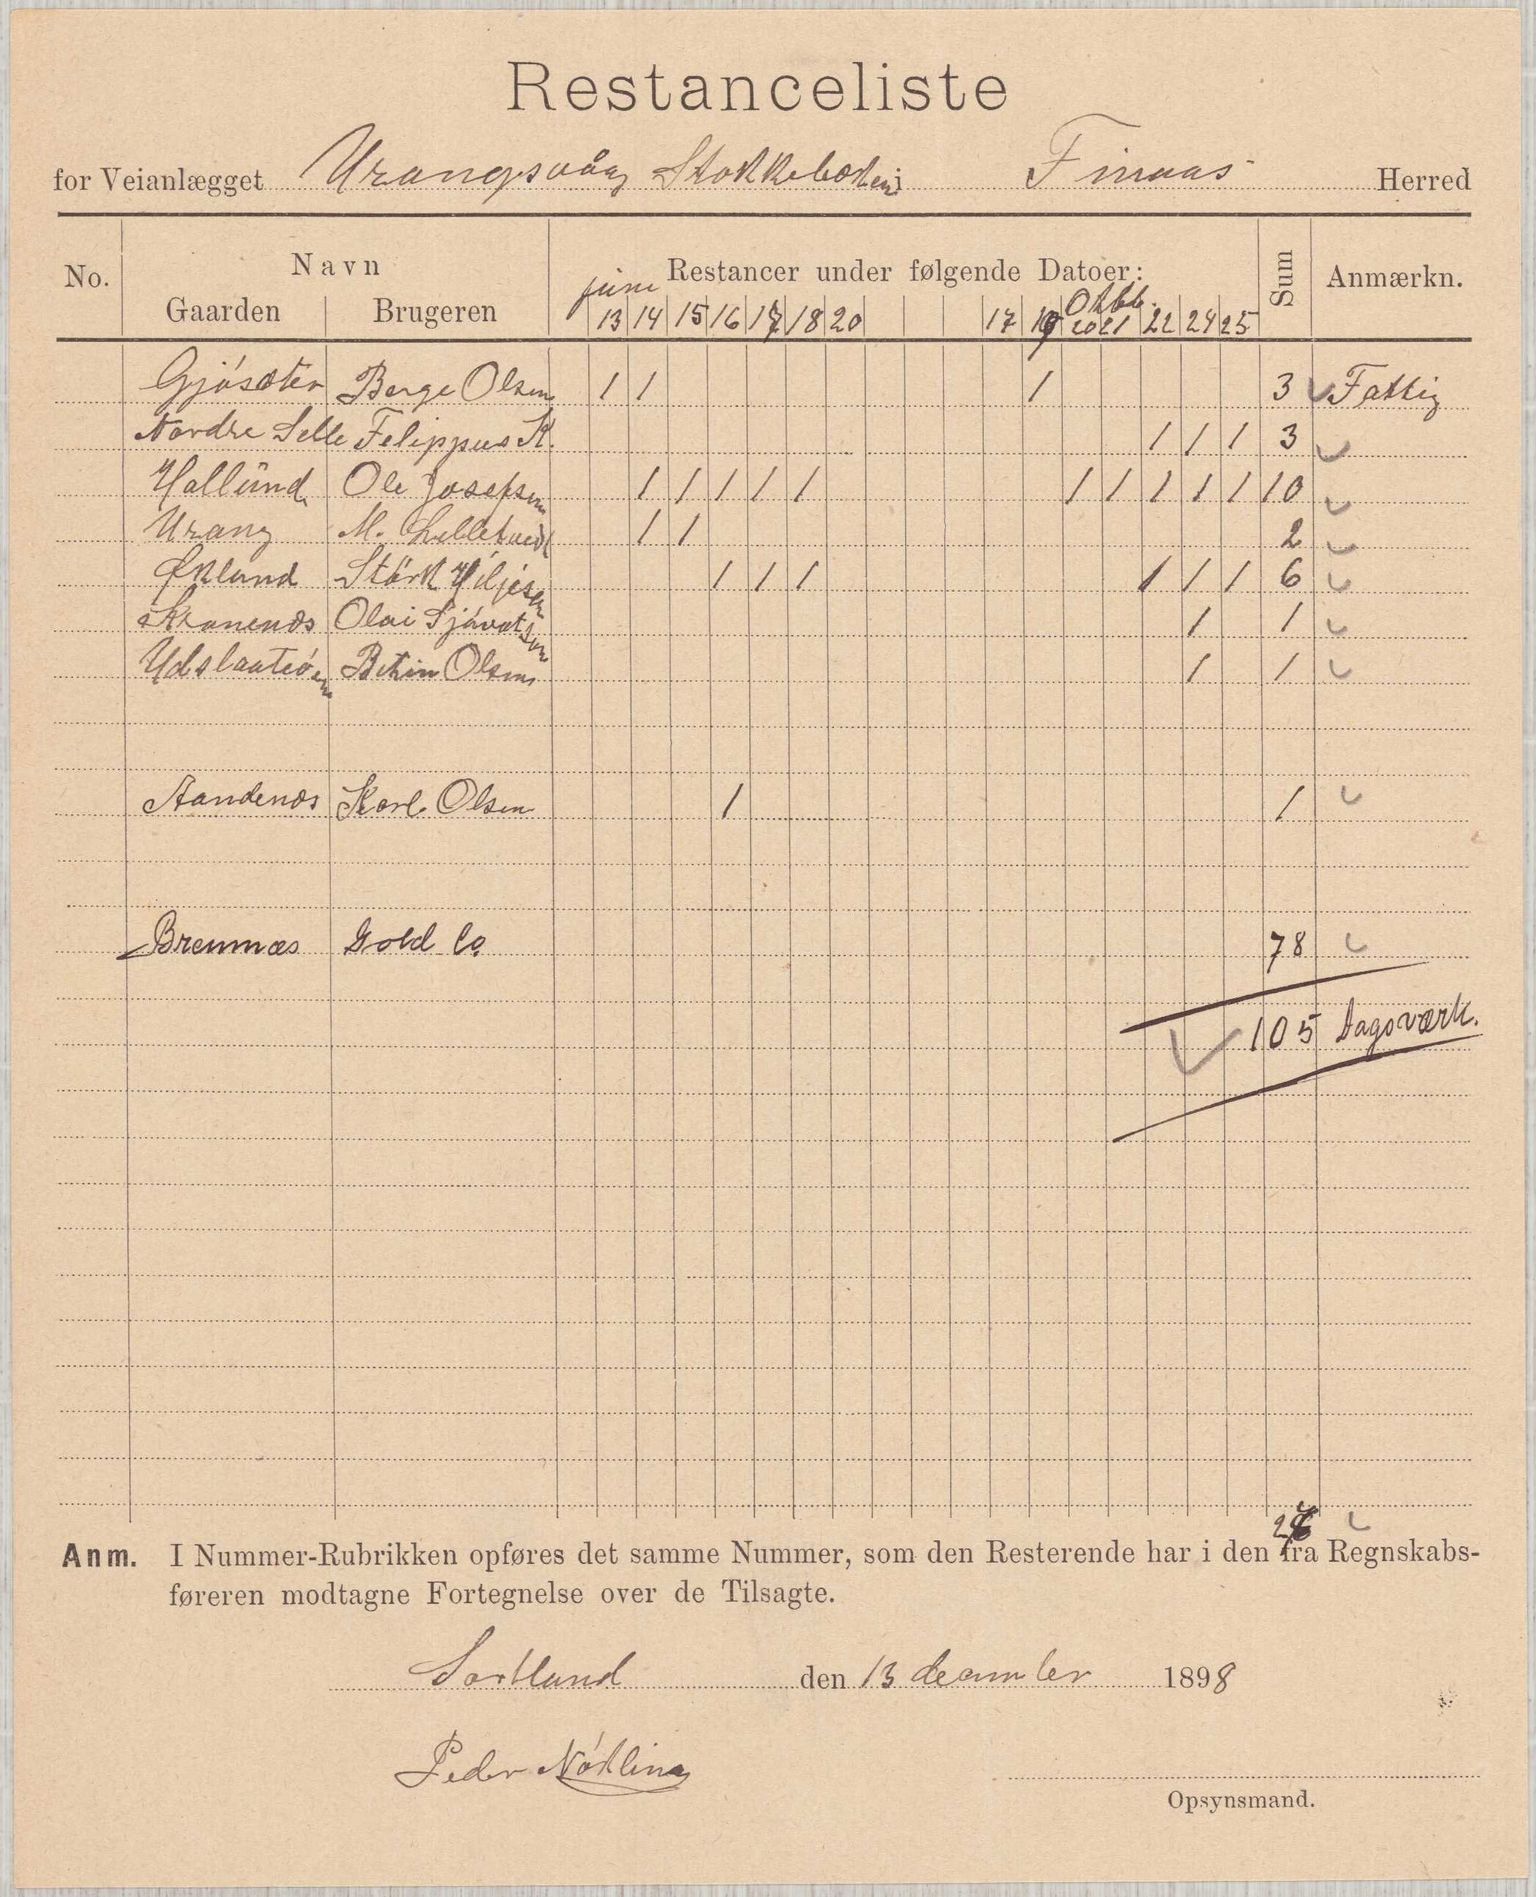 Restanceliste
for Veianlægget Urangsvåg Stokkebækken i Finaas Herred
No. Navn Restancer under følgende Datoer: Sum Anmærkn.
Gaarden Brugeren
juni Oktb.
13 14 15 16 17 18 20 17 19 20 21 22 24 25
Gjøsæter Berge Olsen 1 1 1 3 Fattig
Nordre Selle Felippus K. 1 1 1 3
Hallünd Ole Josefsen 1 1 1 1 1 1 1 1 1 1 10
Urang M. Lilletvedt 1 1 2
Økland Størk Hiljesen 1 1 1 1 1 1 6
Kranenæs Olai 1 1
Olsen 1 1
Aandenæs Karl Olsen 1 1
Bremnæs Gold Co. 78
105 Dagsværk.
Anm. I Nummer-Rubrikken opføres det samme Nummer, som den Resterende har i den fra Regnskabs-
føreren modtagne Fortegnelse over de Tilsagte.
Sortland den 13 december 1898
Peder Nökling
Opsynsmand.